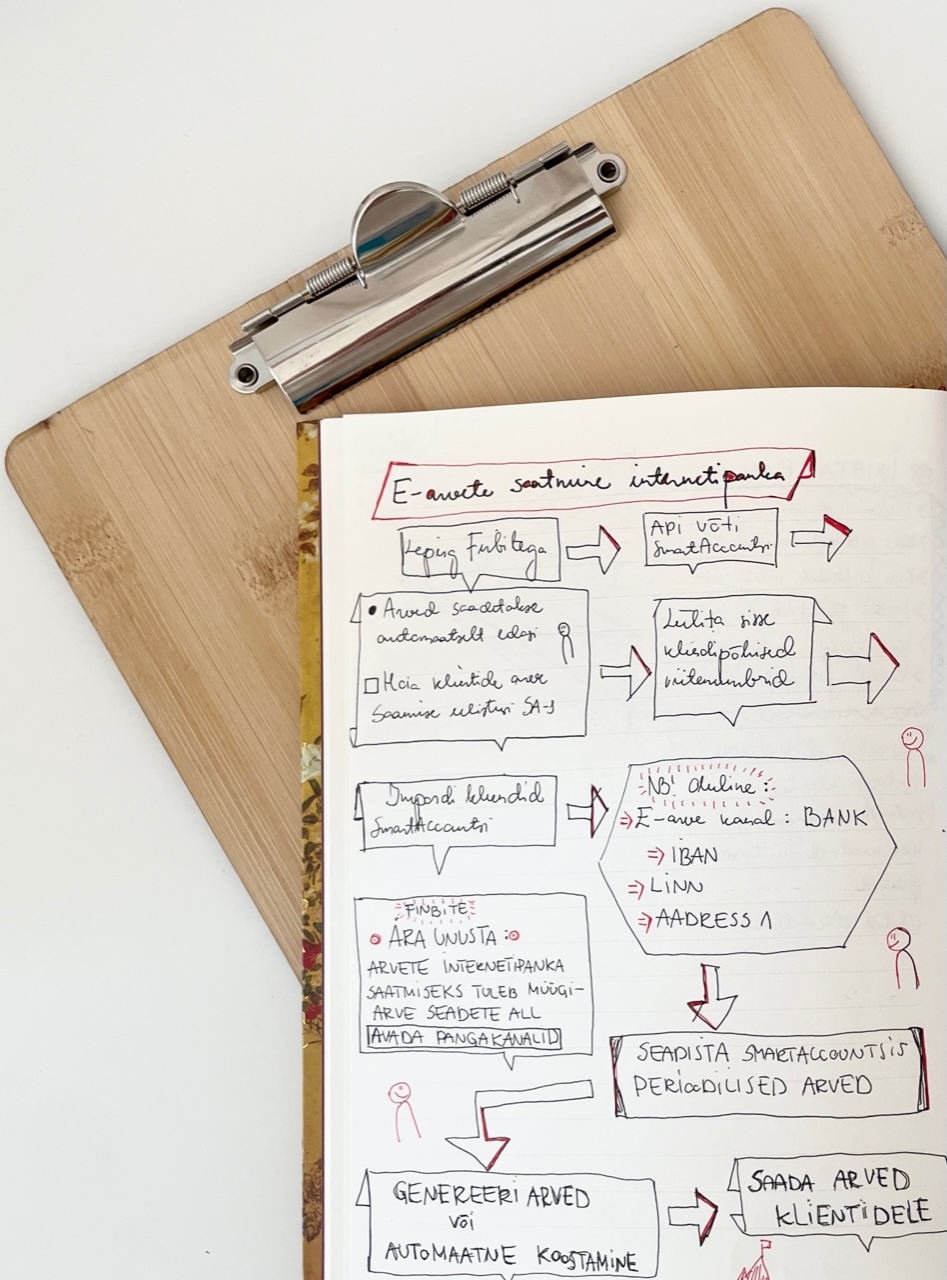 E-arvete saatmine internetipanka
Leping Finbitega
Api võti
SmartAccountsi
Arved saadetakse
automaatselt edasi
klientide arve
saamise SA-s
Lülita sisse
kliendipõhised
viitenumbrid
Impordi kliendid
SmartAccountsi
NB! Oluline:
E-arve kanal: BANK
IBAN
LINN
AADRESS 1
FINBITE
ÄRA UNUSTA:
ARVETE INTERNETIPANKA
SAATMISEKS TULEB MÜÜGI-
ARVE SEADETE ALL
AVADA PANGAKANALID
SEADISTA SMARTACCOUNTSIS
PERIOODILISED ARVED
GENEREERI ARVED
või
AUTOMAATNE KOOSTAMINE
SAADA ARVED
KLIENTIDELE